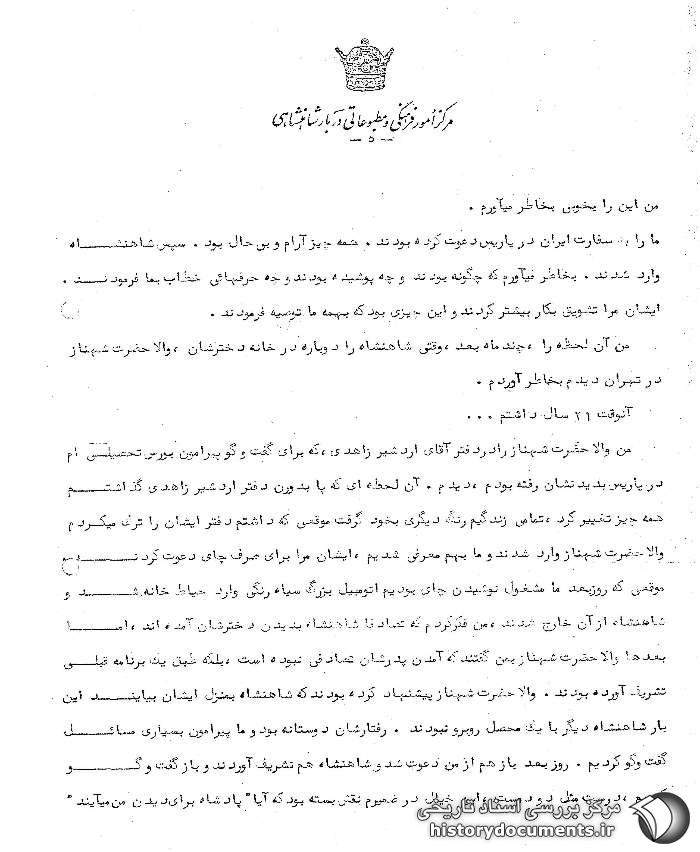 مرکز امور فرهنگی و مطبوعاتی دربار شاهنشاهی
من این را بخوبی بخاطر میآورم .
ما را به سفارت ایران در پاریس دعوت کرده بودند . همه چیز آرام و بی حال بود . سپس شاهنشاه
وارد شدند . بخاطر میآورم که چگونه بودند و چه پوشیده بودند و چه حرفهائی خطاب بما فرمودند .
ایشان مرا تشویق بکار بیشتر کردند و این چیزی بود که بهمه ما توصیه فرمودند .
من آن لحظه را ، چند ماه بعد ، وقتی شاهنشاه را دوباره در خانه دخترشان ، والا حضرت شهناز
در تهران دیدم بخاطر آوردم .
آنوقت ۲۱ سال داشتم ...
من والا حضرت شهناز را در دفتر آقای اردشیر زاهدی ، که برای گفت و گو پیرامون بورس تحصیلی ام
در پاریس بدیدنشان رفته بودم ، دیدم . آن لحظه ای که پا بدرون دفتر اردشیر زاهدی گذاشتم
همه چیز تغییر کرد ، تمامی زندگیم رنگ دیگری بخود گرفت موقعی که داشتم دفتر ایشان را ترک میکردم
والا حضرت شهناز وارد شدند و ما بهم معرفی شدیم ، ایشان مرا برای صرف چای دعوت کردند
موقعی که روز بعد ما مشغول نوشیدن چای بودیم اتومبیل بزرگ سیاه رنگی وارد حیاط خانه شد و
شاهنشاه از آن خارج شدند ، من فکر کردم که تصادفا شاهنشاه بدیدن دخترشان آمده اند ، اما
بعدها والا حضرت شهناز بمن گفتند که آمدن پدرشان تصادفی نبوده است ، بلکه طبق یک برنامه قبلی
تشریف آورده بودند . والا حضرت شهناز پیشنهاد کرده بودند که شاهنشاه بمنزل ایشان بیایند این
بار شاهنشاه دیگر با یک محصل روبرو نبودند . رفتارشان دوستانه بود و ما پیرامون بسیاری مسائل
گفت و گو کردیم . روز بعد باز هم از من دعوت شد و شاهنشاه هم تشریف آوردند و باز گفت و گو
درست مثل دو دوست ، این خیال در ضمیرم نقش بسته بود که آیا " پادشاه برای دیدن من میآیند "
مرکز بررسی اسناد تاریخی
historydocuments.ir